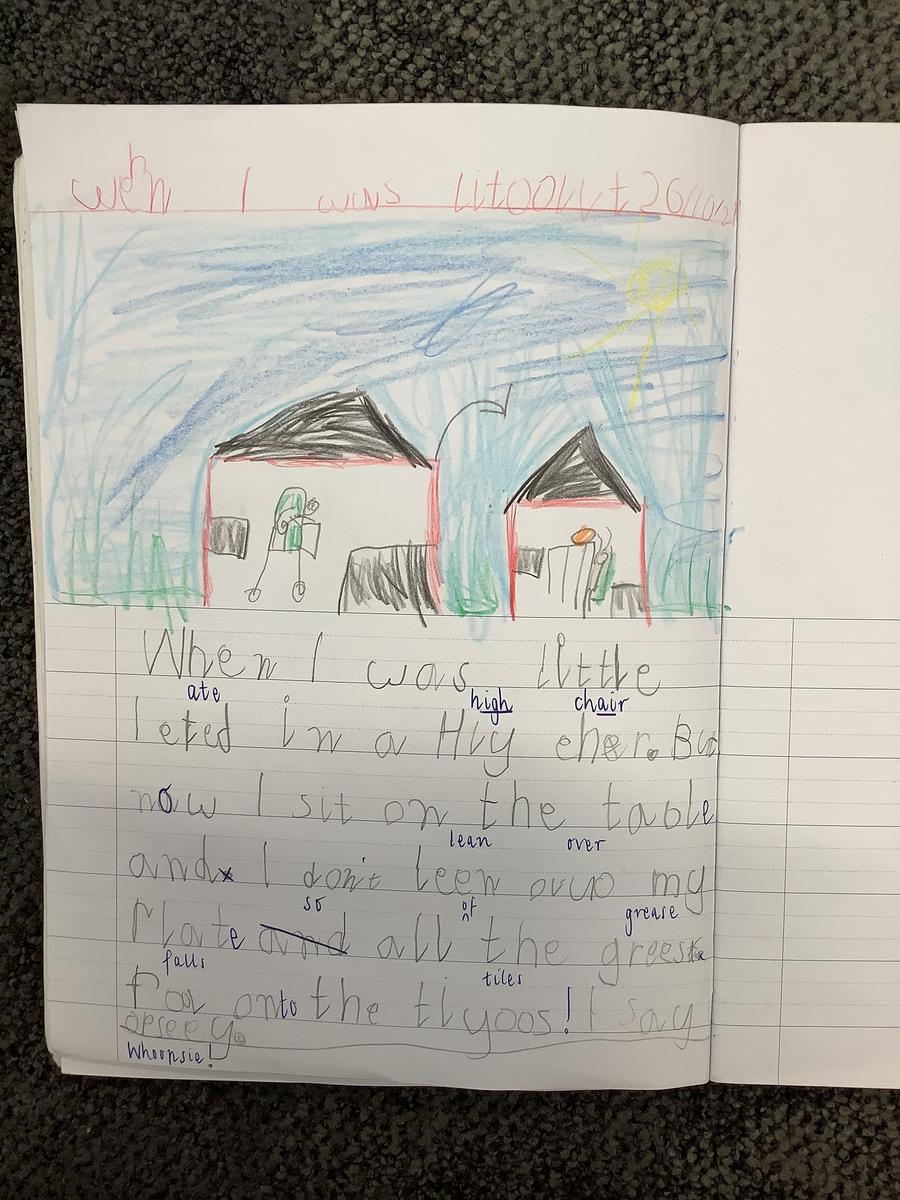 weh I was litoowt 26/10/2
When I was little
ate high chair
I eted in a Hiy cher. But
now I sit on the table
lean over
and x I don't leen ovuo my
so of grease
Plate and all the grees
falls tiles
foor onto the tiyoos! I say
opseey.
Whoopsie!